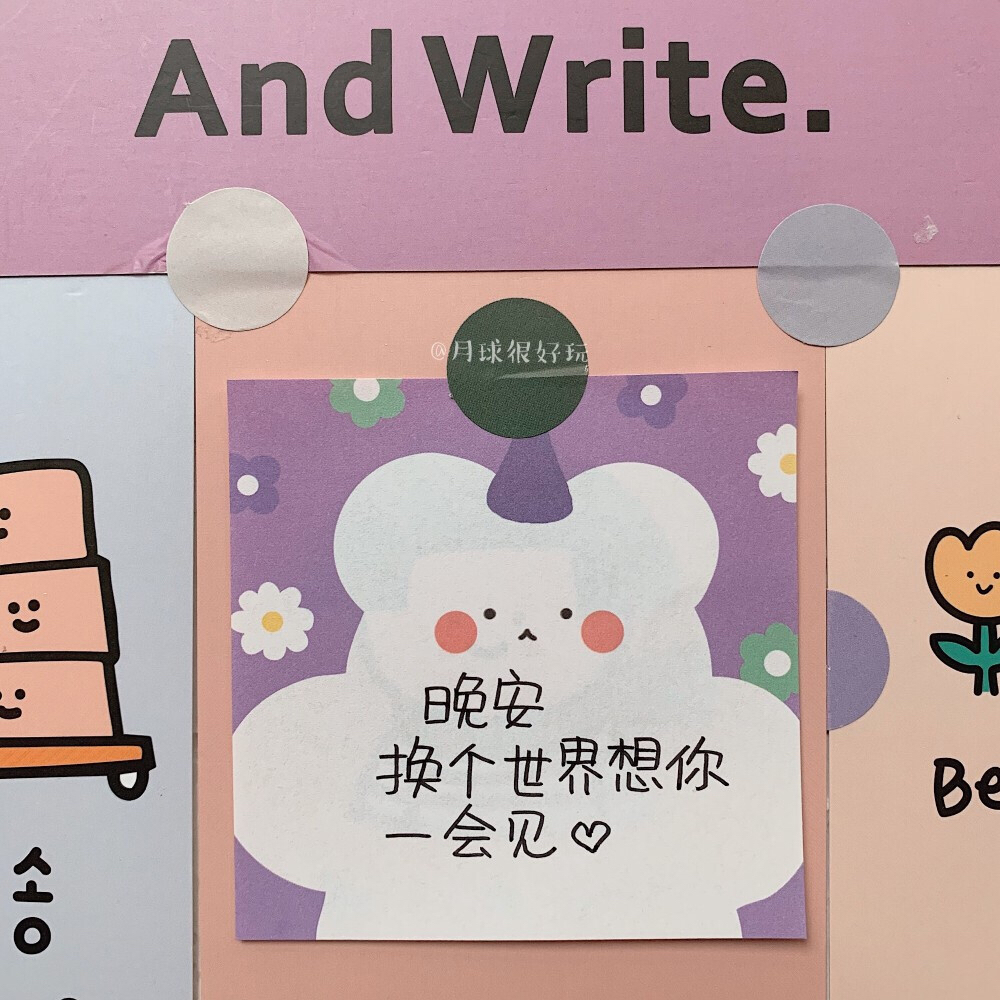 And Write.
@月球很好玩
晚安
换个世界想你
一会见♡
송
Be